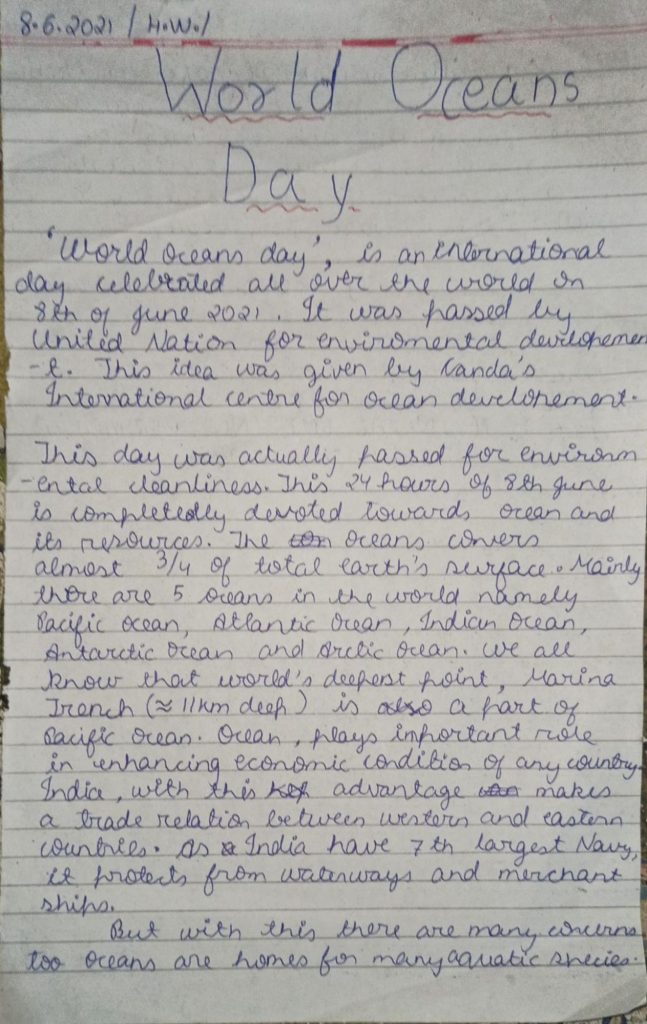 8.6.2021 / H.W./
World Oceans
Day
'World Oceans day', is an international
day celebrated all over the world on
8th of June 2021. It was passed by
United Nation for enviromental developemen
-t. This idea was given by Canda's
International centre for ocean developement.
This day was actually passed for environm
-ental cleanliness. This 24 hours of 8th June
is completedly devoted towards ocean and
its resources. The Oceans convers
almost 3/4 of total earth's surface. Mainly
there are 5 oceans in the world namely
Pacific Ocean, Atlantic Ocean, Indian Ocean,
Antarctic Ocean and Arctic Ocean. We all
know that world's deepest point, Marina
Trench (≈ 11km deep) is also a part of
Pacific Ocean. Ocean, plays important role
in enhancing economic condition of any country.
India, with this advantage makes
a trade relation between western and eastern
countries. As India have 7th largest Navy,
it protects from waterways and merchant
ships.
But with this there are many concerns
too oceans are homes for many aquatic species.